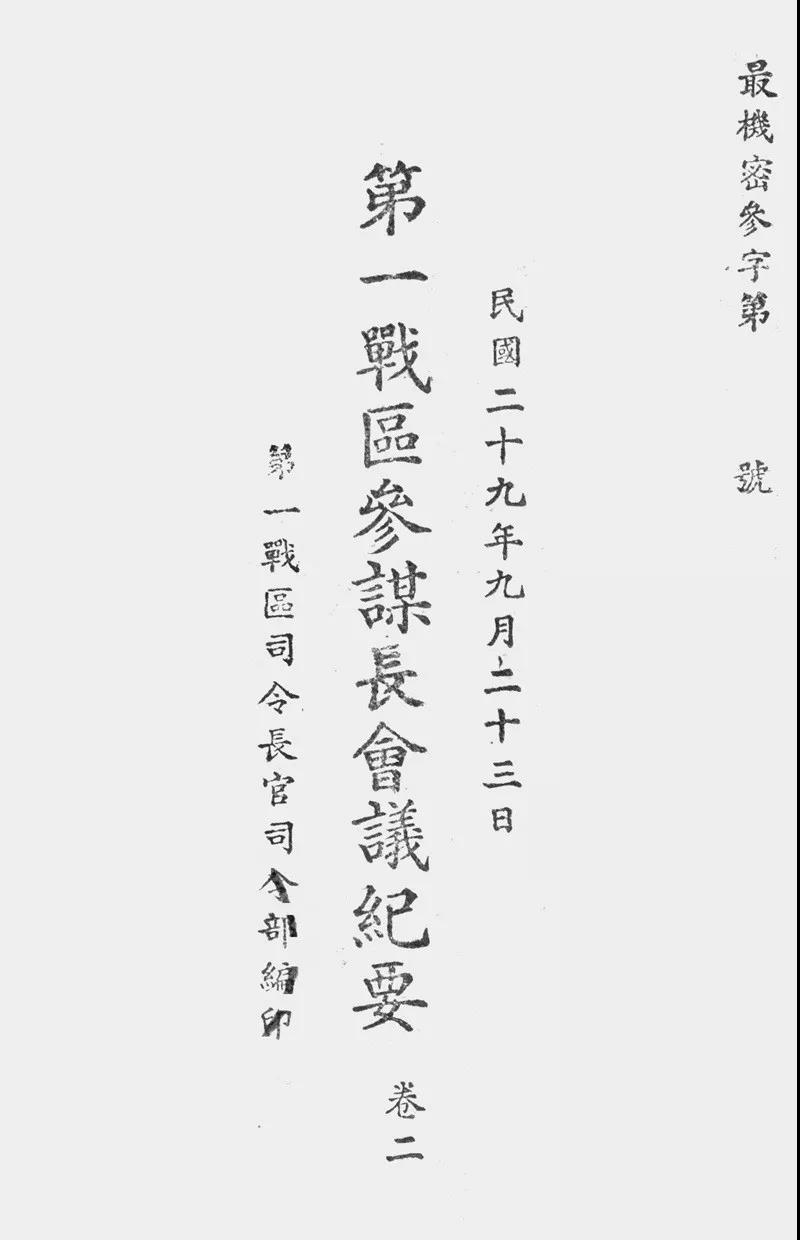 最機密參字第　　號
民國二十九年九月二十三日
第一戰區參謀長會議紀要　卷二
第一戰區司令長官司令部編印